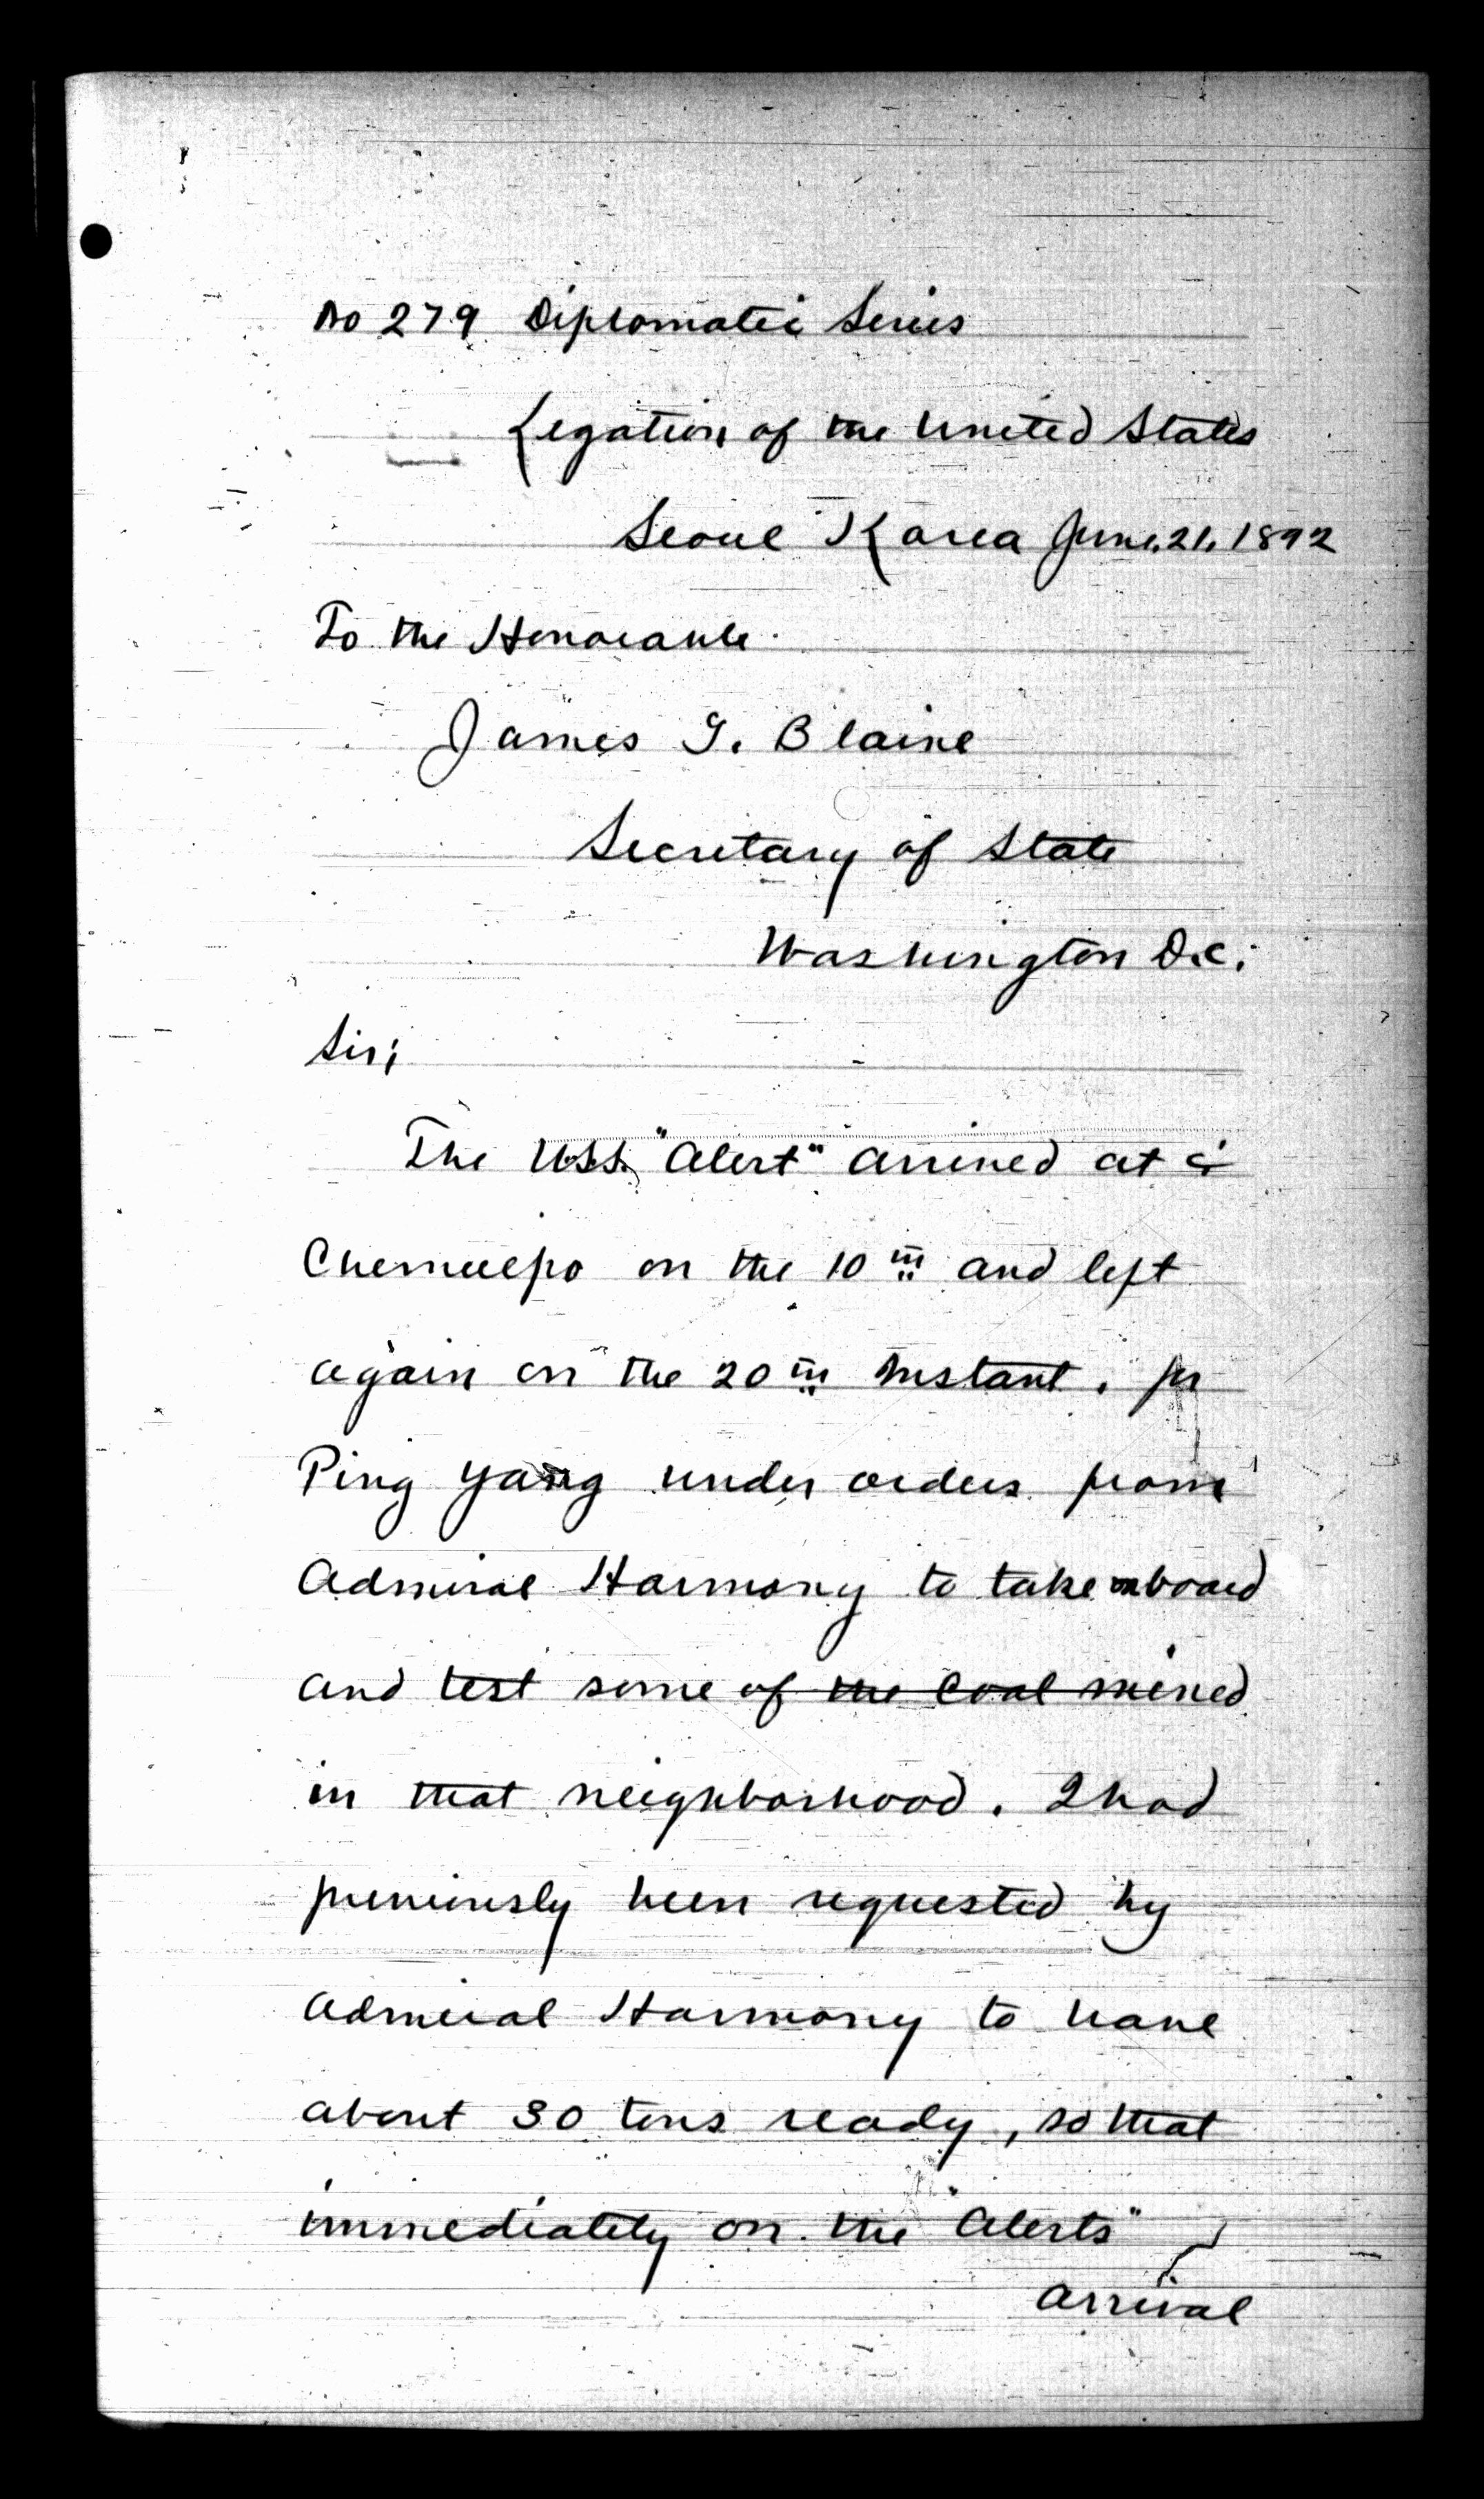 No 279 Diplomatic Series
Legation of the United States
Seoul Korea June. 21. 1892
To the Honorable
James G. Blaine
Secretary of State
Washington D.C.
Sir;
The U.S.S. "Alert" arrived at
Chemulpo on the 10th and left
again on the 20th Instant. for
Ping Yang under orders from
Admiral Harmony to take on board
and test some of the coal mined
in that neighborhood. I had
previously been requested by
Admiral Harmony to have
about 30 tons ready, so that
immediately on the "Alerts"
arrival